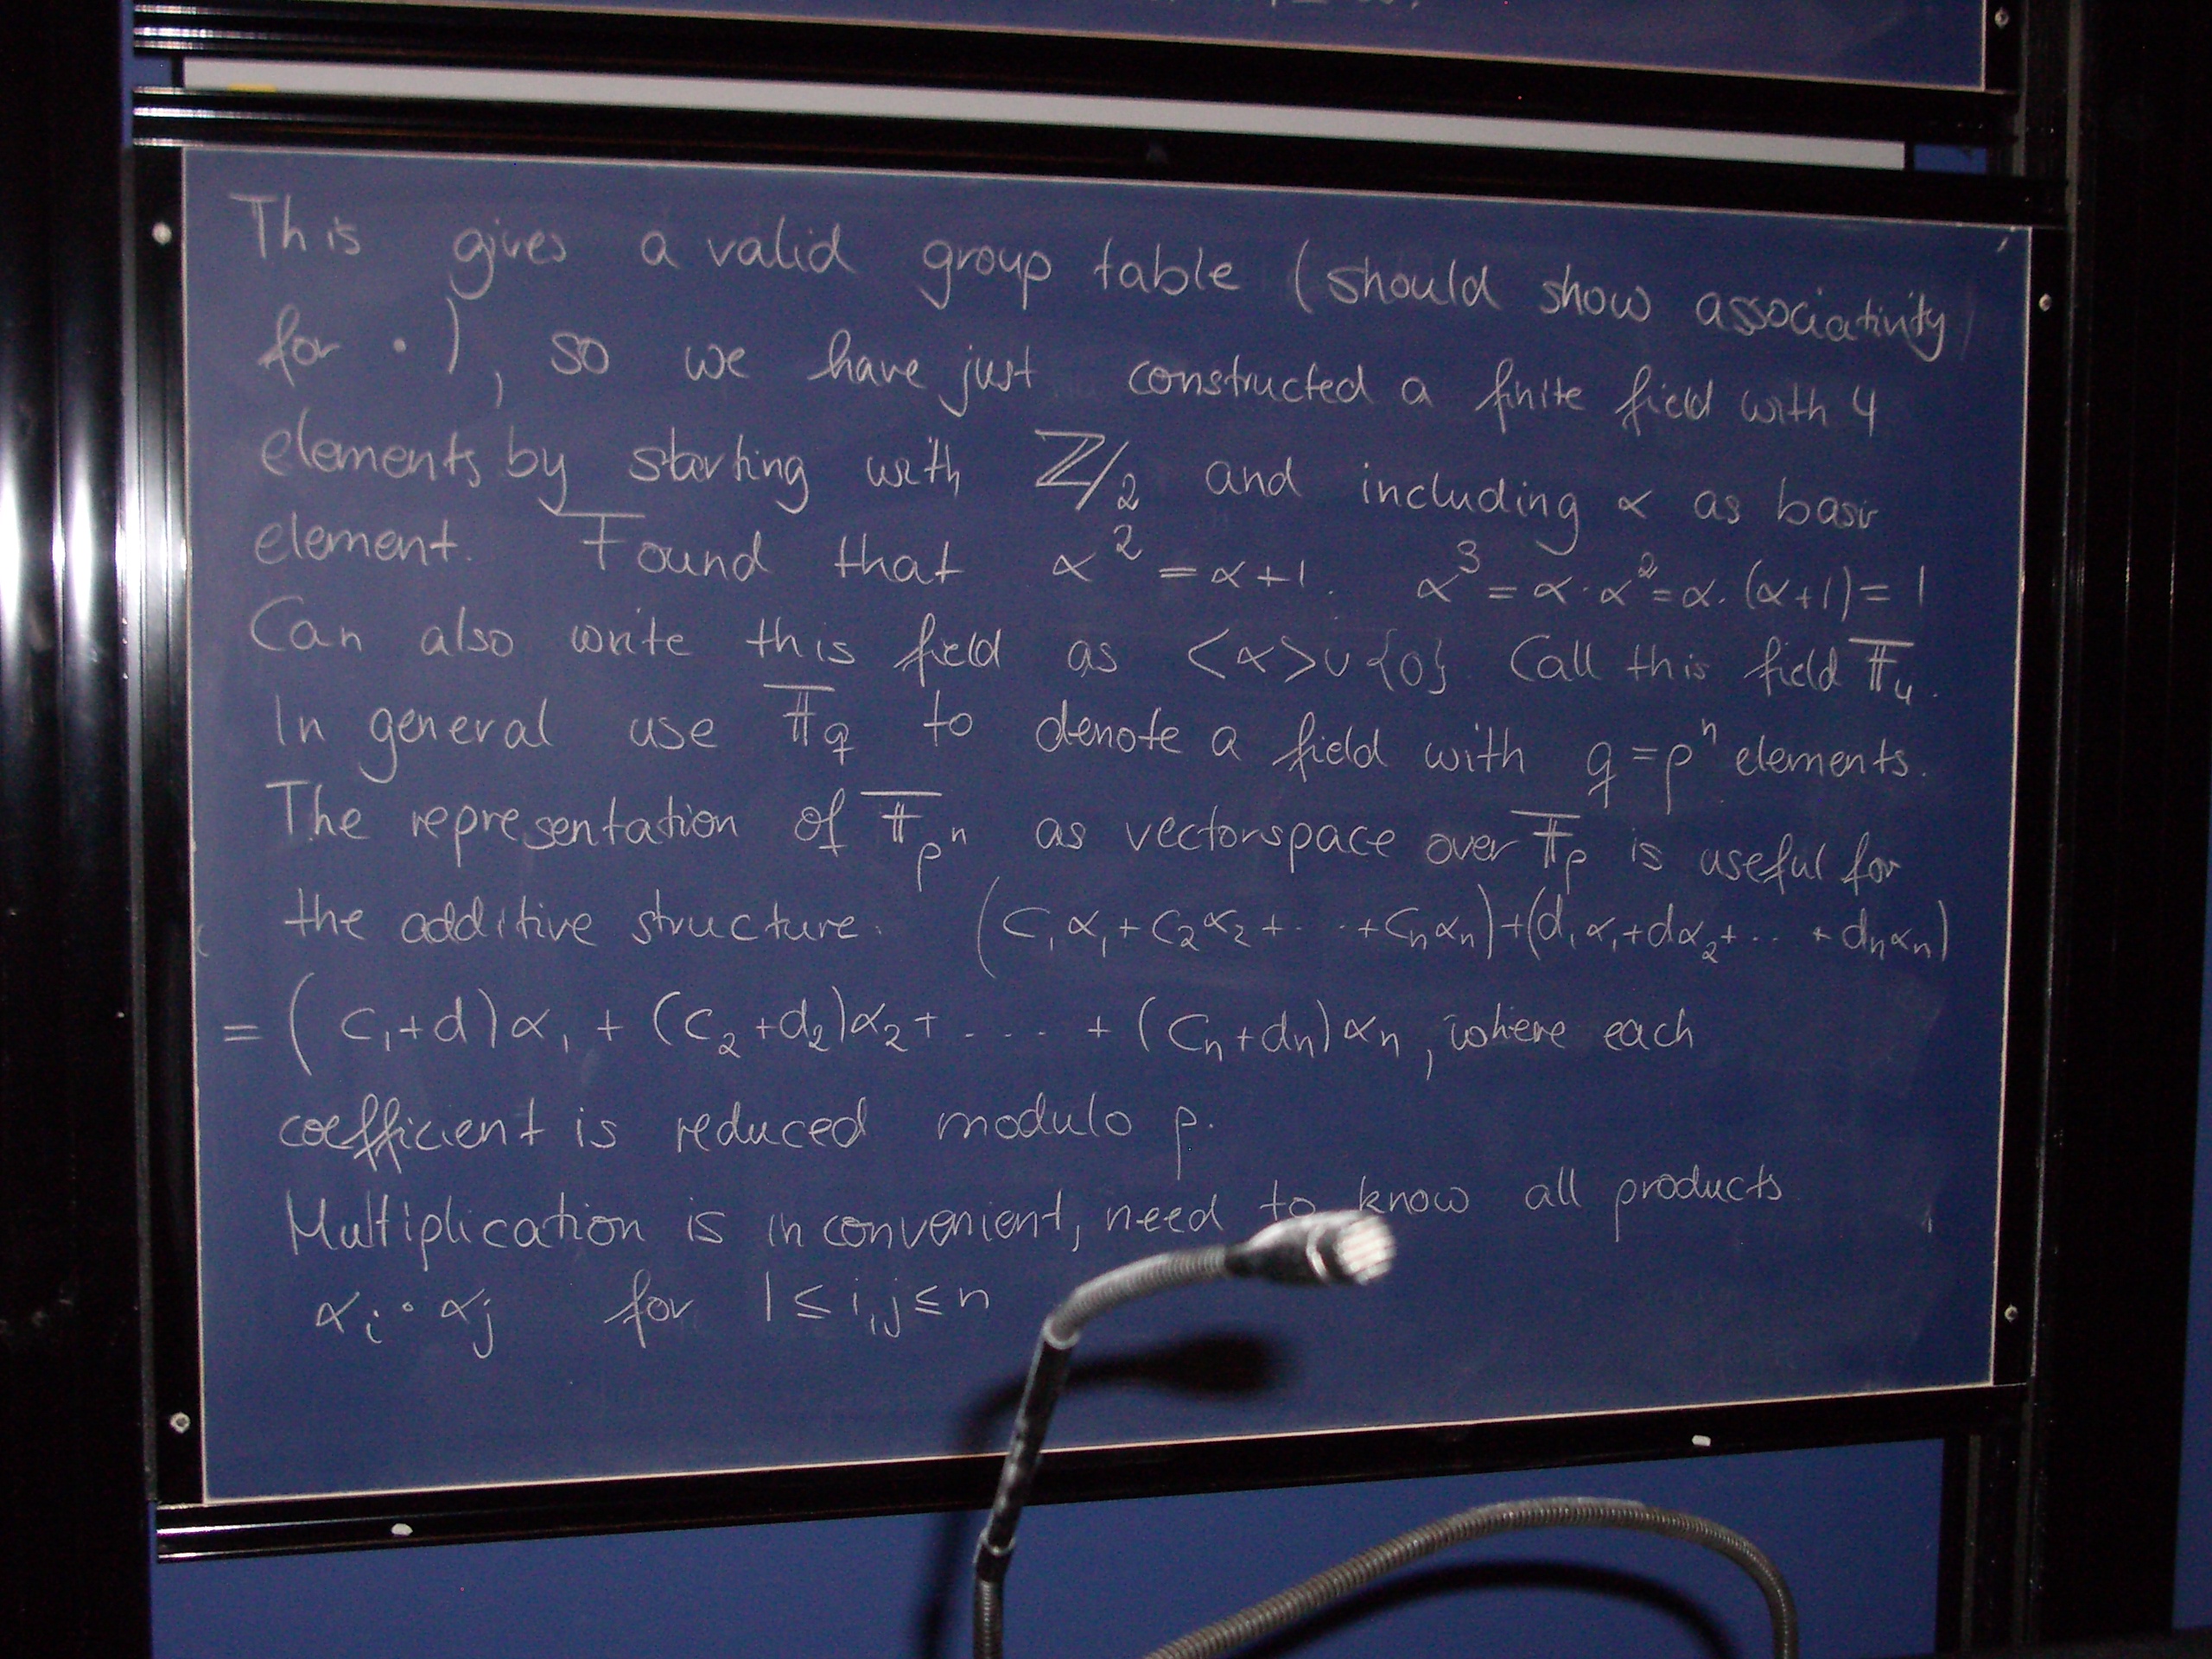 This gives a valid group table (should show associativity
for · ), so we have just constructed a finite field with 4
elements by starting with ℤ/2 and including α as basis
element. Found that α² = α+1. α³ = α·α² = α·(α+1) = 1
Can also write this field as <α>∪{0}. Call this field 𝔽₄.
In general use 𝔽_q to denote a field with q = pⁿ elements.
The representation of 𝔽_pⁿ as vectorspace over 𝔽_p is useful for
the additive structure. (c₁α₁+c₂α₂+...+cₙαₙ)+(d₁α₁+dα₂+...+dₙαₙ)
= (c₁+d)α₁ + (c₂+d₂)α₂+ .... + (cₙ+dₙ)αₙ, where each
coefficient is reduced modulo p.
Multiplication is inconvenient, need to know all products
αᵢ·αⱼ for 1≤i,j≤n